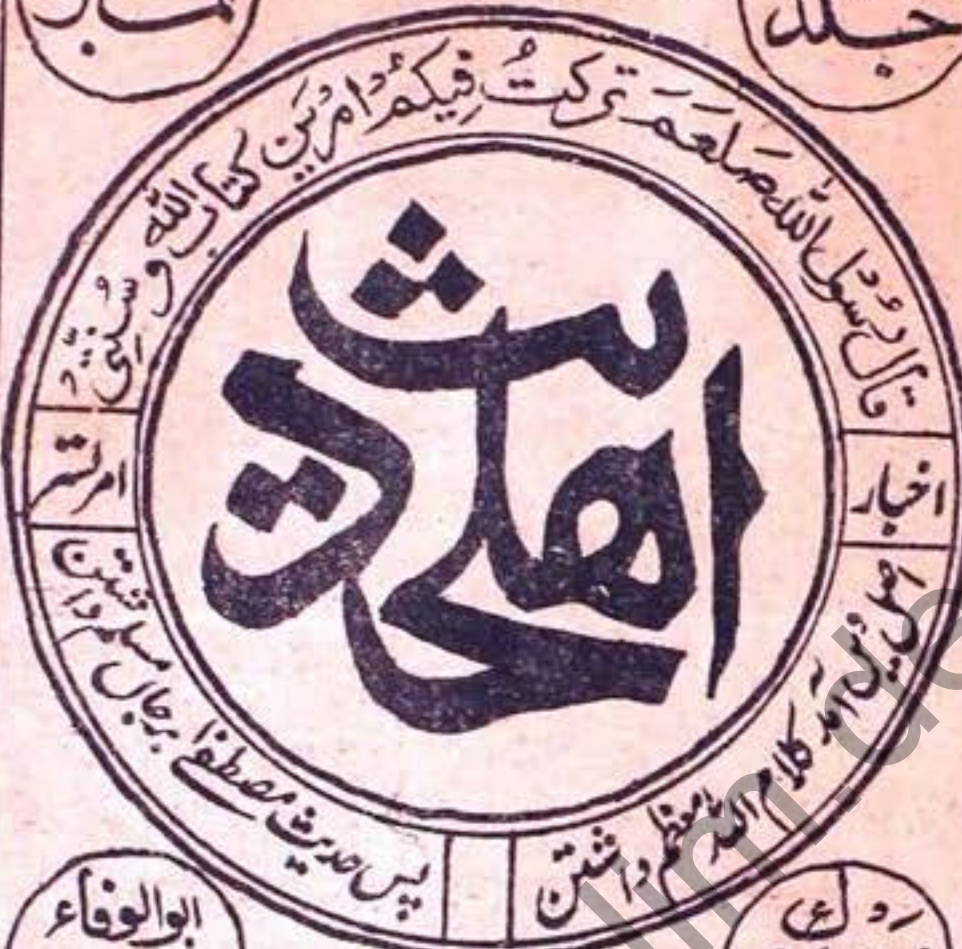 جلد
نمبر
قَالَ رَسُولُ اللہِ صَلعَم تَرَكتُ فِيكُمْ اَمْرَيْنِ كِتَابَ اللہِ وَ سُنَّتِي
اھلحدیث
اخبار
امرتسر
اصل دین آمد کلام اللہ معظم داشتن
پس حدیث مصطفےٰ برجاں مسلم داشتن
ابوالوفاء